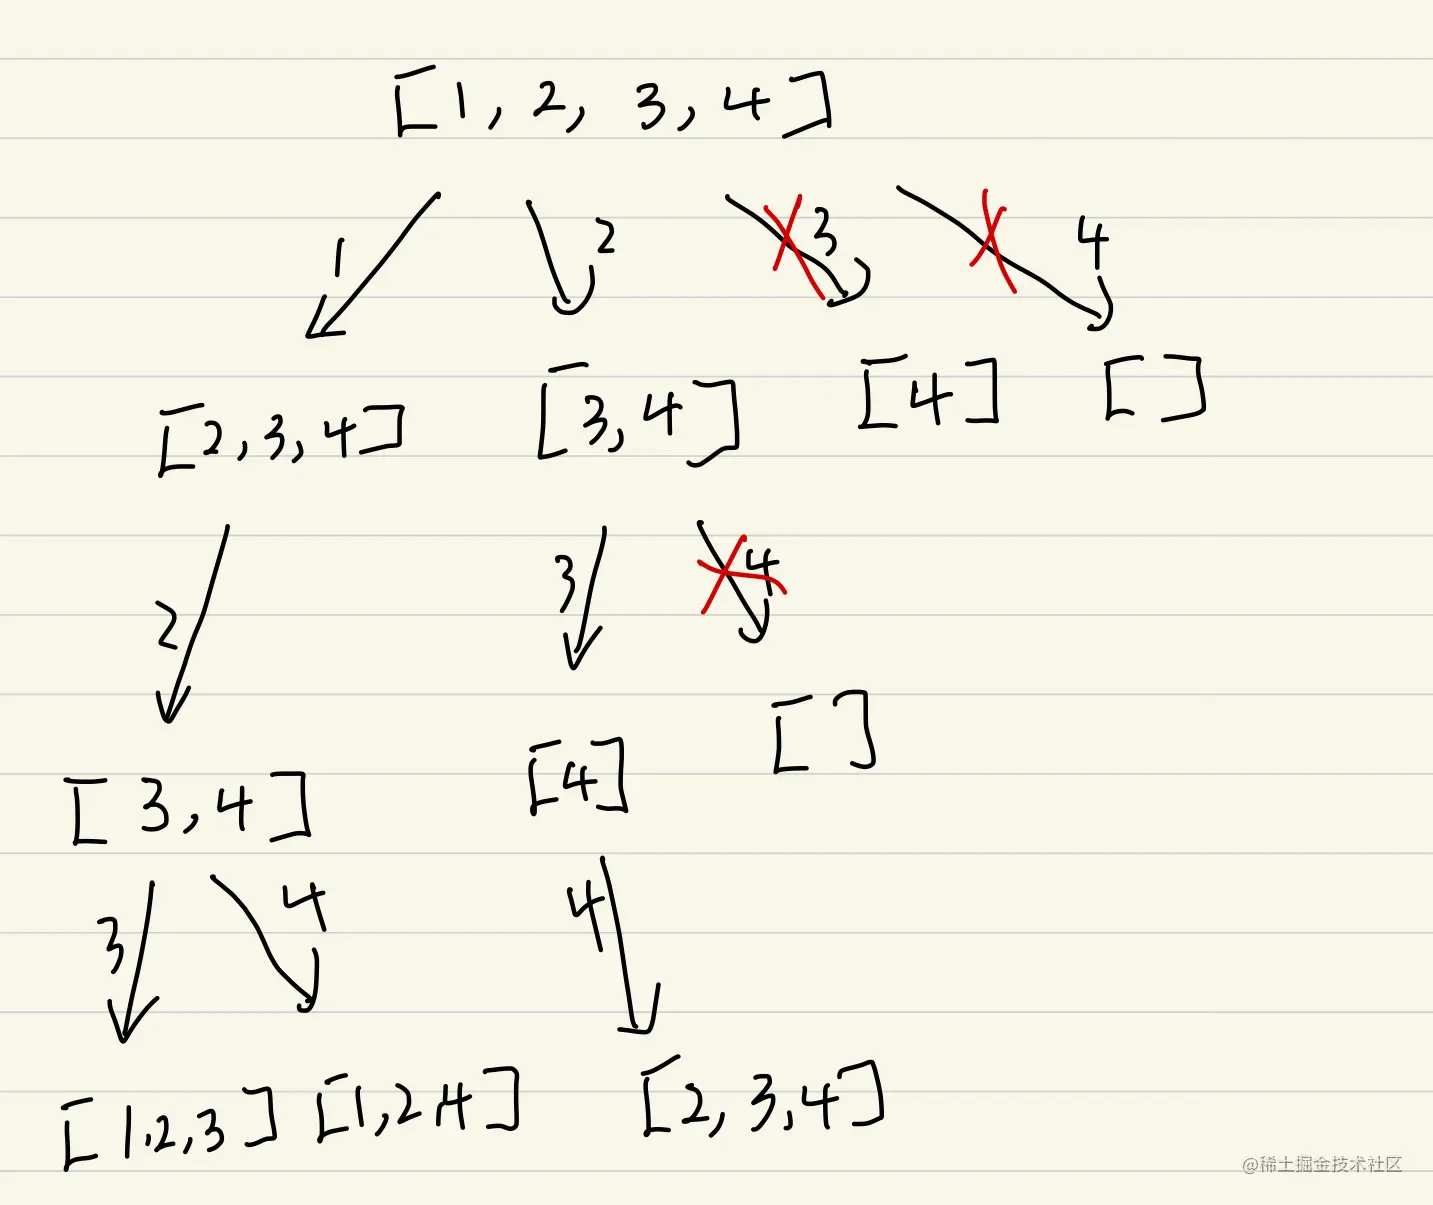 [1, 2, 3, 4]
1 2 3 4
[2, 3, 4] [3, 4] [4] [ ]
2 3 4
[3, 4] [4] [ ]
3 4 4
[1, 2, 3] [1, 2, 4] [2, 3, 4]
@稀土掘金技术社区